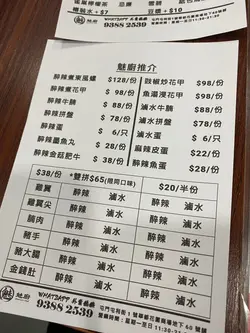 蝶豆水 + $7
豆漿 + $10
WHATSAPP 或電落單
9388 2539
魅廚推介
醉辣煮東風螺 $128/份
醉辣煮花甲 $98/份
醉辣牛腩 $88/份
醉辣拼盤 $78/份
醉辣蛋 $ 6/只
醉辣墨魚丸 $28/份
醉辣金菇肥牛 $38/份
豉椒炒花甲 $98/份
魚湯浸花甲 $98/份
滷水牛腩 $88/份
滷水拼盤 $78/份
滷水蛋 $ 6/只
麻辣皮蛋 $22/份
醉辣魚蛋 $28/份
$38/份 *雙拼$65(限同口味) $20/半份
雞翼 醉辣 滷水 醉辣 滷水
雞翼尖 醉辣 滷水 醉辣 滷水
腩肉 醉辣 滷水 醉辣 滷水
豬手 醉辣 滷水 醉辣 滷水
豬大腸 醉辣 滷水 醉辣 滷水
金錢肚 醉辣 滷水 醉辣 滷水
魅廚
WHATSAPP 或電落單
9388 2539